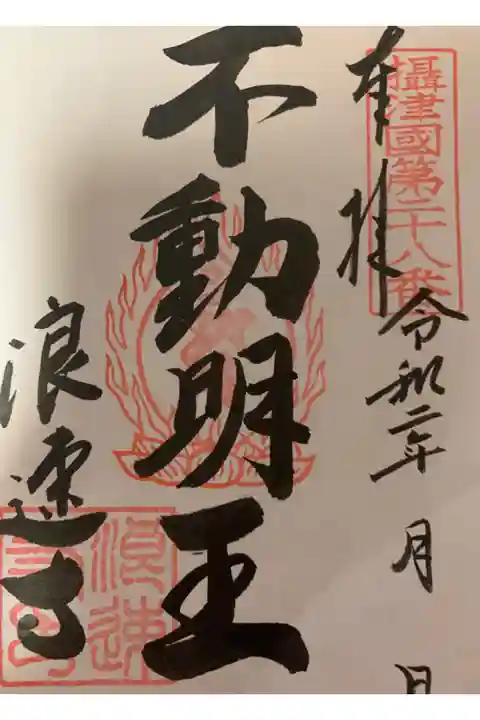 攝津國第二十八番
奉拝
令和二年 月 日
不動明王
浪速寺
浪速